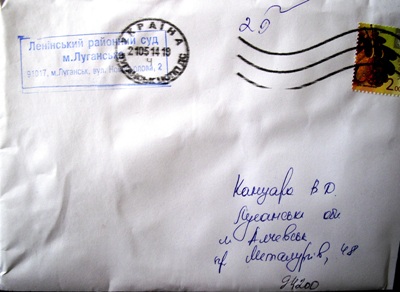 Ленінський районний суд
м.Луганська
91017, м.Луганськ, вул. 2
УКРАЇНА
210514-18
ч
20
2.00
Канцара В О
Луганськ обл
м Алчевськ
пр. Металургів, 48
94200